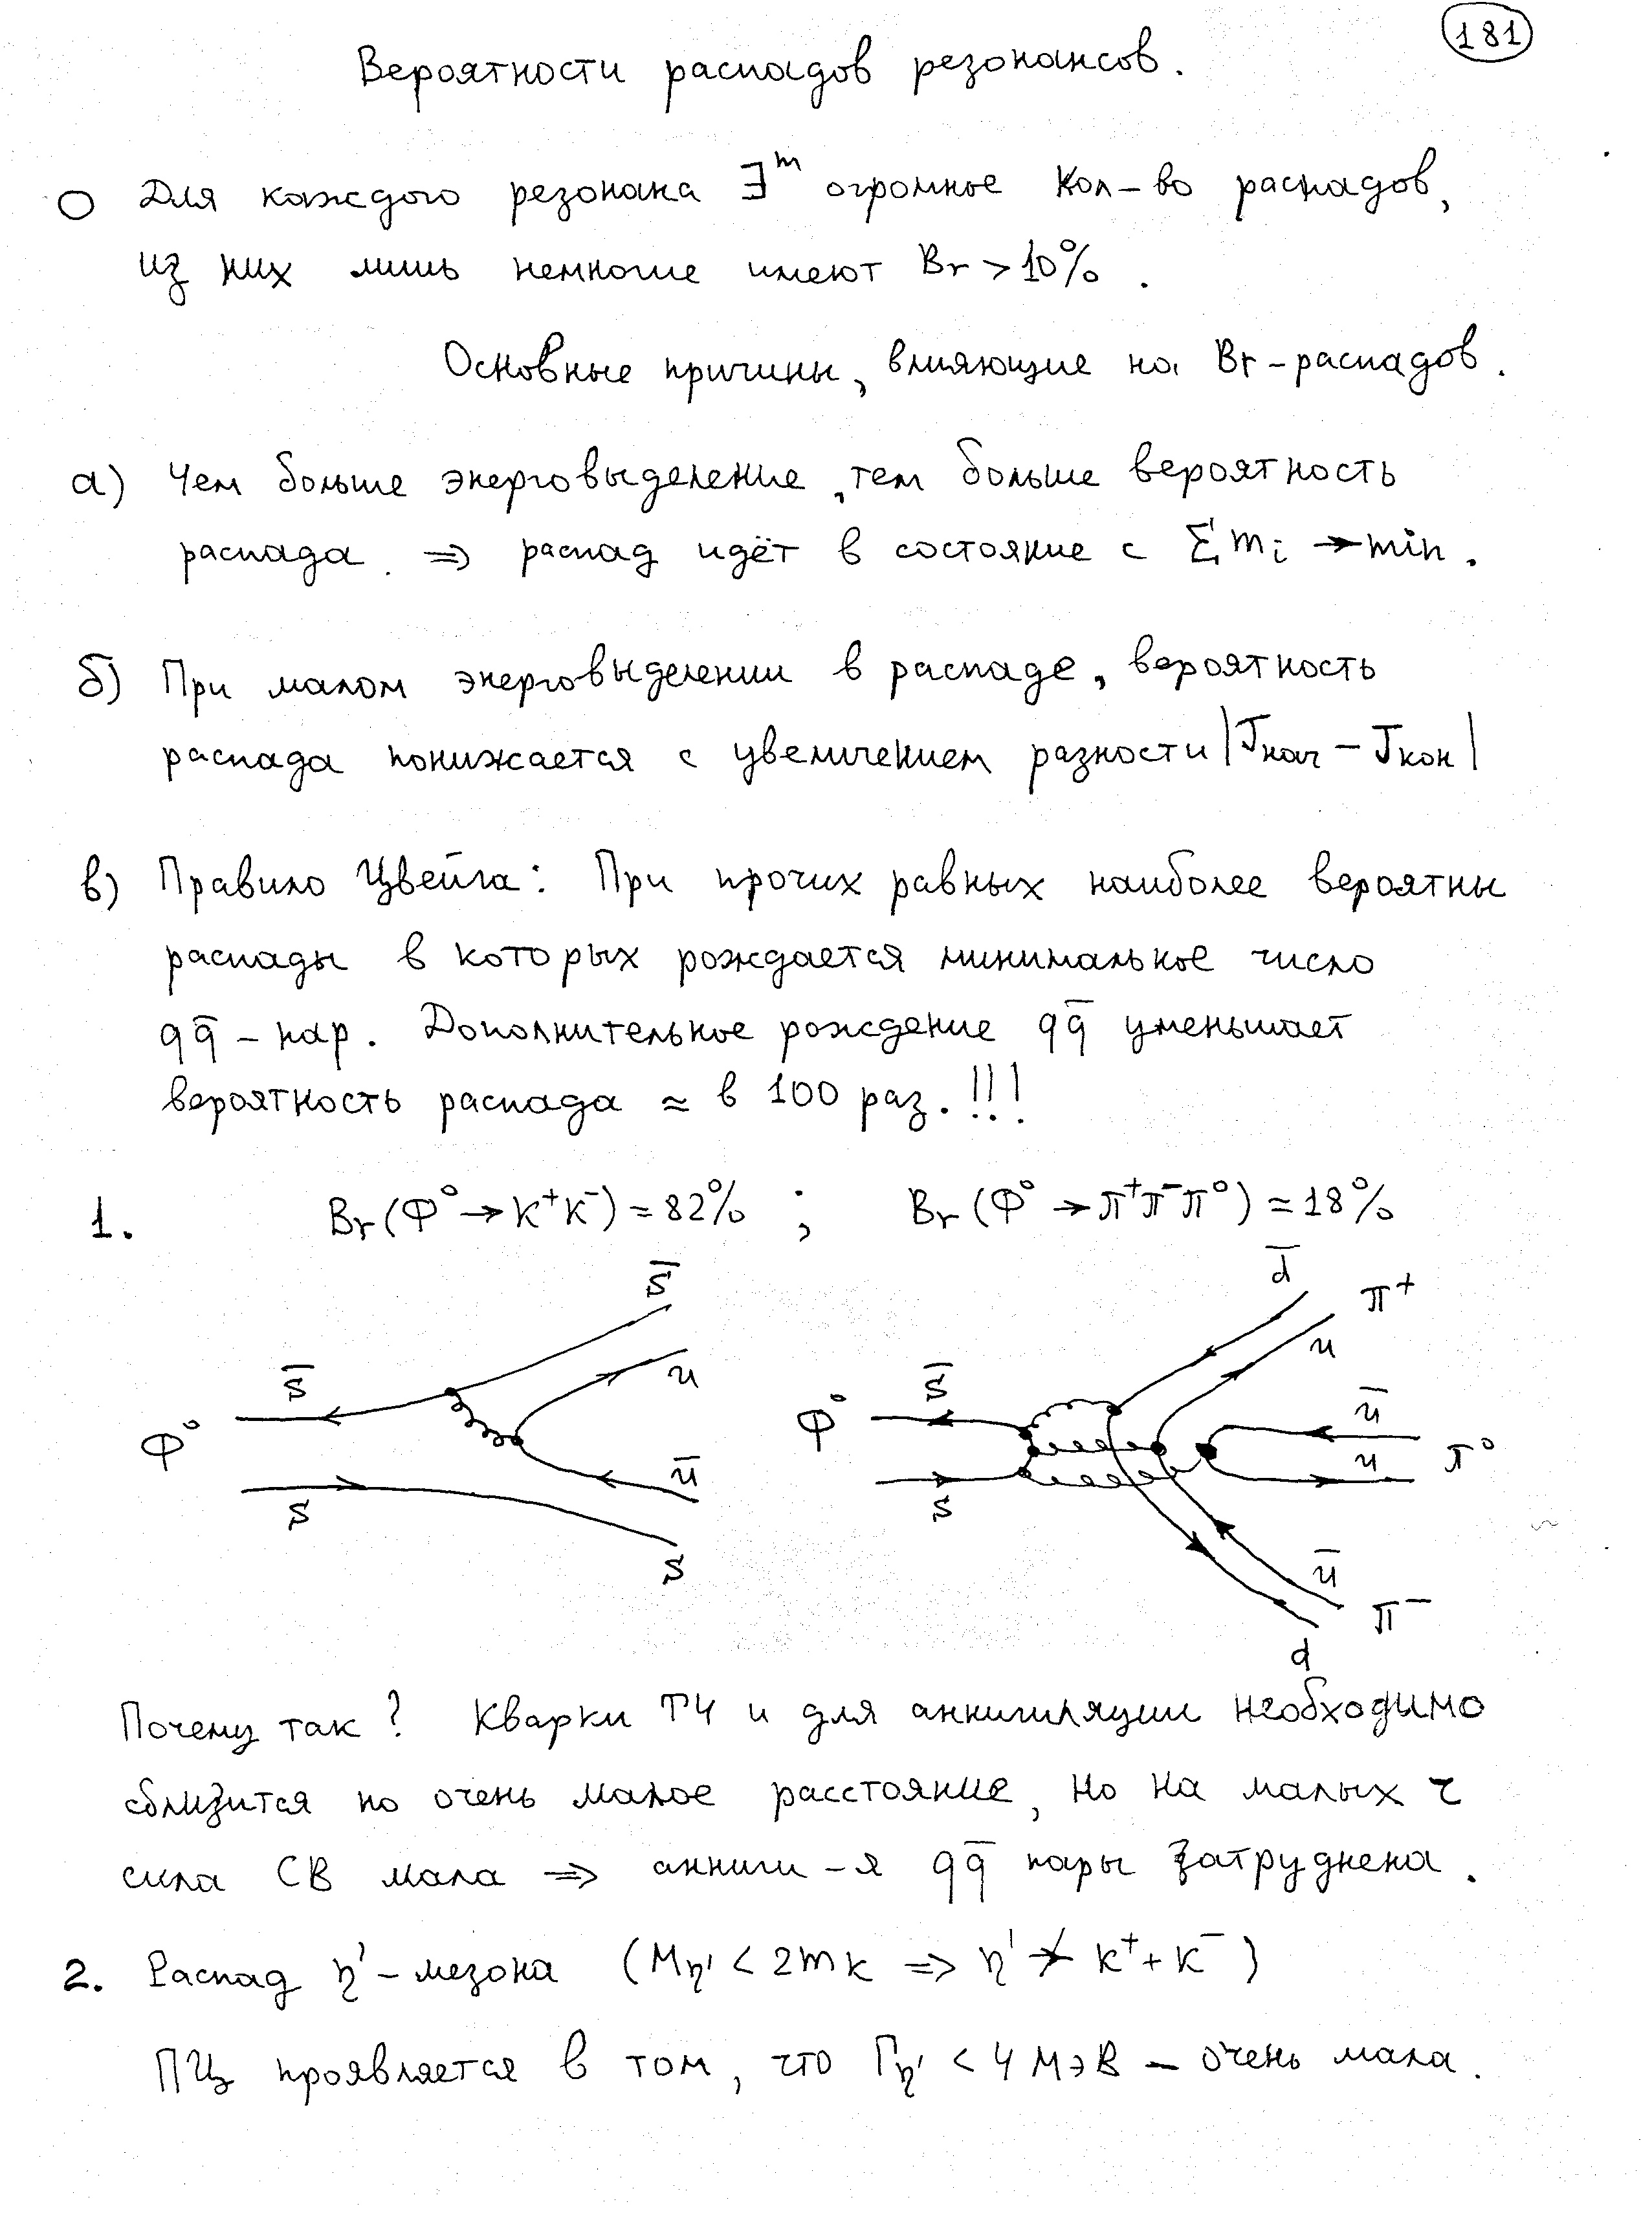 181
Вероятности распадов резонансов.
Для каждого резонана ∃ᵐ огромное кол-во распадов,
из них лишь немногие имеют Br > 10% .
Основные причины, влияющие на Br-распадов.
а) Чем больше энерговыделение, тем больше вероятность
распада. ⇒ распад идёт в состояние с Σ mᵢ → min.
б) При малом энерговыделении в распаде, вероятность
распада понижается с увеличением разности |Jнач − Jкон|
в) Правило Цвейга: При прочих равных наиболее вероятны
распады в которых рождается минимальное число
qq̄ - пар. Дополнительное рождение qq̄ уменьшает
вероятность распада ≈ в 100 раз.!!!
1. Br(Φ⁰ → K⁺K⁻) ≈ 82% ; Br(Φ⁰ → π⁺π⁻π⁰) ≈ 18%
s̄ d̄ π⁺
s̄ u s̄ u
Φ⁰ Φ⁰ ū
u π⁰
s ū s
s ū
π⁻
d
Почему так? Кварки ТЧ и для аннигиляции необходимо
сблизится на очень малое расстояние, но на малых r
сила СВ мала ⇒ анниги-я qq̄ пары затруднена.
2. Распад η′-мезона (Mη′ < 2mK ⇒ η′ ↛ K⁺ + K⁻)
ПЦ проявляется в том, что Γη′ < 4 МэВ – очень мала.